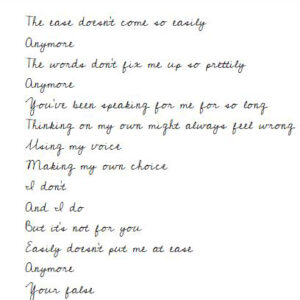 The ease doesn't come so easily
Anymore
The words don't fix me up so prettily
Anymore
You've been speaking for me for so long
Thinking on my own might always feel wrong
Using my voice
Making my own choice
I don't
And I do
But it's not for you
Easily doesn't put me at ease
Anymore
Your false